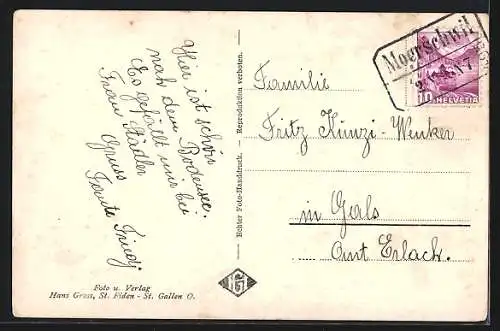 Hier ist schön
nach dem Bodensee.
Es gefällt mir bei
Frau Städler
Gruss
Tante Friedj
Foto u. Verlag
Hans Gross, St. Fiden - St. Gallen O.
Echter Foto-Handdruck. — Reproduktion verboten.
Mörschwil
10 HELVETIA
Familie
Fritz Künzi-Wenker
in Gals
Amt Erlach.